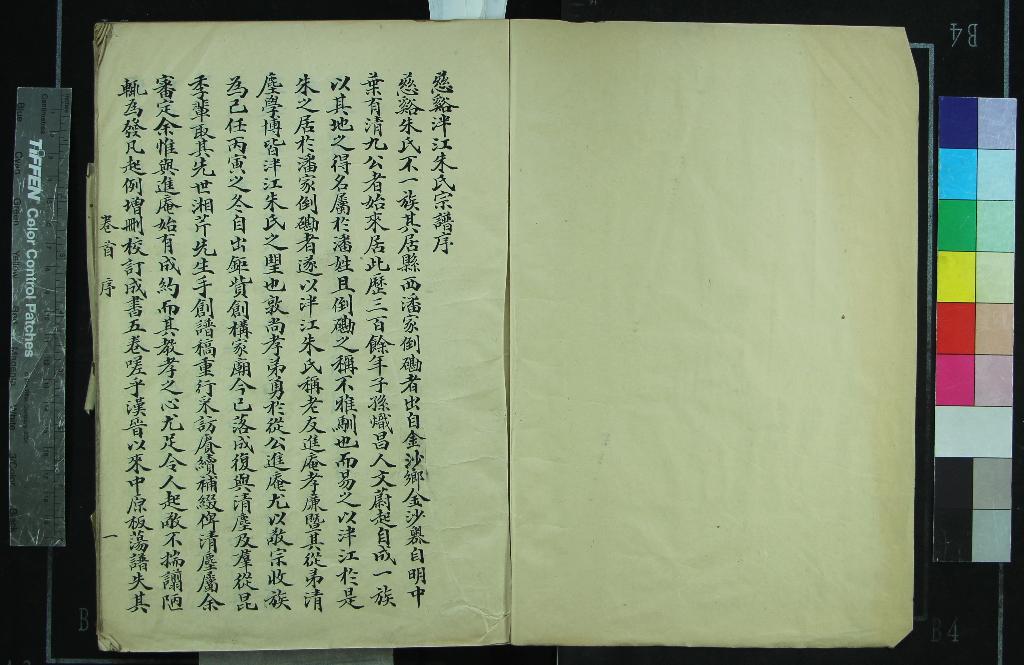 慈谿泮江朱氏宗譜序
慈谿朱氏不一族其居縣西潘家倒磡者出自金沙鄉金沙嶴自明中
葉有清九公者始來居此歷三百餘年子孫熾昌人文蔚起自成一族
以其地之得名屬於潘姓且倒磡之稱不雅馴也而易之以泮江於是
朱之居於潘家倒磡者遂以泮江朱氏稱老友進庵孝廉暨其從弟清
塵學博皆泮江朱氏之望也敦尚孝弟勇於從公進庵尤以敬宗收族
為己任丙寅之冬自出鉅貲創構家廟今已落成復與清塵及羣從昆
季輩取其先世湘芹先生手創譜稿重行采訪賡續補綴俾清塵屬余
審定余惟與進庵始有成約而其教孝之心尤足令人起敬不揣譾陋
輒為發凡起例增刪校訂成書五卷嗟乎漢晉以來中原板蕩譜失其
卷首 序 一
TIFFEN Color Control Patches
B4
B4